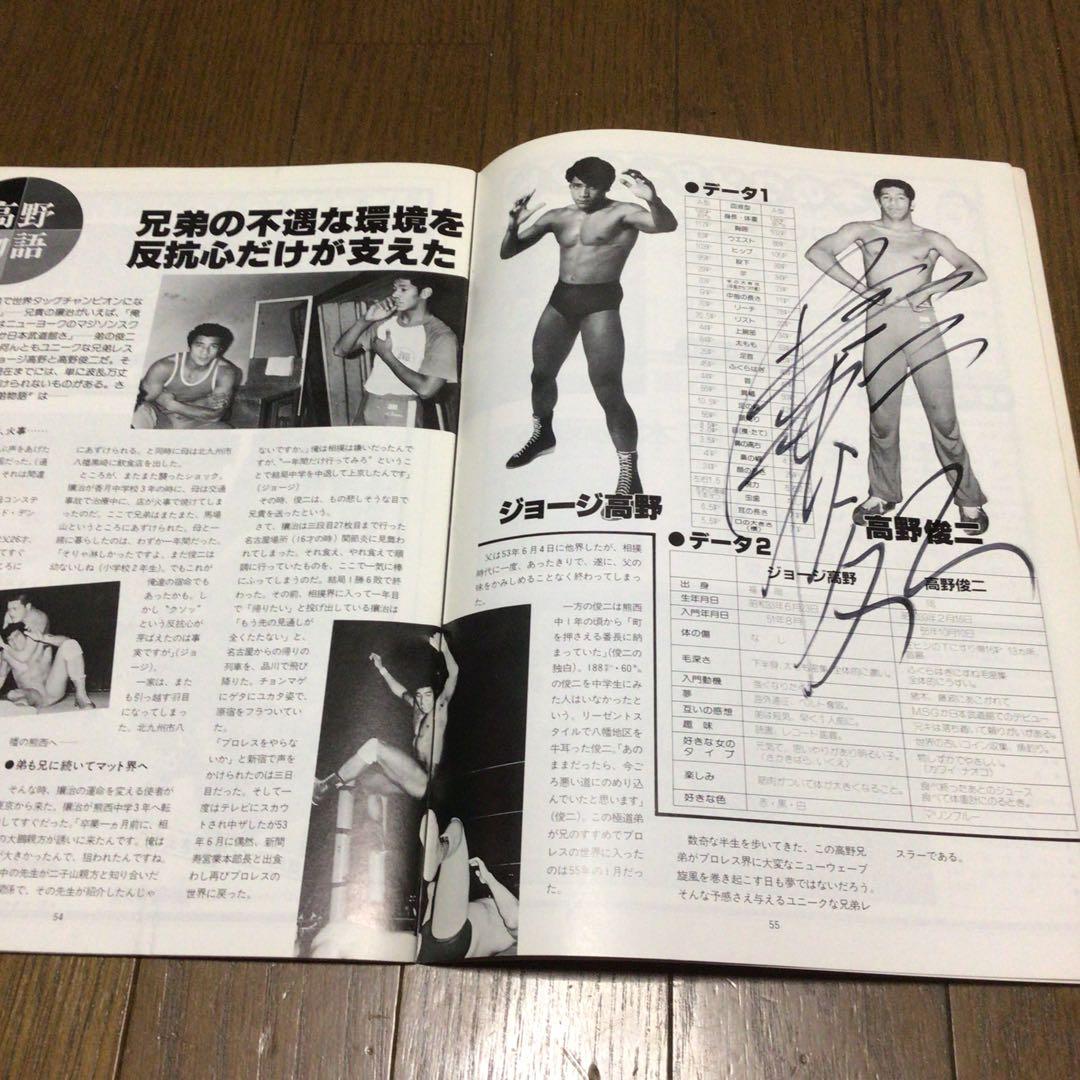 高野
物語
兄弟の不遇な環境を
反抗心だけが支えた
で世界タッグチャンピオンにな
兄貴の攘治がいえば、「俺
はニューヨークのマジソンスク
日本武道館さ」──弟の俊二
何んともユニークな兄弟レス
ョージ高野と高野俊二だ。そ
現在までには、単に波乱万丈
けられないものがある。さ
弟物語”は──
、火事……
にあずけられる。と同時に母は北九州市
八幡黒崎に飲食店を出した。
ところが、またまた襲ったショック。
攘治が香月中学校3年の時に、母は交通
事故で治療中に、店が火事で焼けてしま
ったのだ。ここで兄弟はまたまた、馬場
山というところにあずけられた。母と一
緒に暮らしたのは、わずか一年間だった。
「そりゃ淋しかったですよ、まだ俊二は
幼ないしね（小学校2年生）。でもこれが
俺達の宿命でも
あったかも。し
かし“クソッ”
という反抗心が
芽ばえたのは事
実ですが」（ジョ
ージ）。
一家は、また
も引っ越す羽目
になってしまっ
た。北九州市八
幡の熊西へ──
●弟も兄に続いてマット界へ
そんな時、攘治の運命を変える使者が
東京から来た。攘治が熊西中学3年へ転
してすぐだった。「卒業一ヵ月前に、相
の大鵬親方が誘いに来たんです。俺は
が大きかったんで、狙われたんですね。
中の先生が二子山親方と知り合いだ
関係で、その先生が紹介したんじゃ
54
ないですか。」俺は相撲は嫌いだったんで
すが、“一年間だけ行ってみろ”というこ
とで結局中学を中退して上京したんです」
（ジョージ）
その時、俊二は、もの悲しそうな目で
兄貴を送ったという。
さて、攘治は三段目27枚目まで行った
名古屋場所（16才の時）関節炎に見舞わ
れてしまった。それ食え、やれ食えで順
調に行っていたものを、ここで一気に棒
にふってしまうのだ。結局1勝6敗で終
わった。その前、相撲界に入って一年目
で「帰りたい」と投げ出している攘治は
「もう先の見通しが
全くたたない」と、
名古屋からの帰りの
列車を、品川で飛び
降りた。チョンマゲ
にゲタにユカタ姿で、
原宿をフラついてい
た。
「プロレスをやらな
いか」と新宿で声を
かけられたのは三日
目だった。そして一
度はテレビにスカウ
トされ中ザしたが53
年6月に偶然、新間
寿営業本部長と出食
わし再びプロレスの
世界に戻った。
ジョージ高野
●データ1
A型
血液型
A型
身長・体重
胸囲
ウエスト
ヒップ
股下
手
中指の長さ
リーチ
リスト
上腕部
太もも
足首
ふくらはぎ
首
肩幅
鼻の高さ
虫歯
耳の長さ
口の大きさ
(横)
高野俊二
父は53年6月4日に他界したが、相撲
時代に一度、あったきりで、遂に、父の
味をかみしめることなく終わってしまっ
た。
一方の俊二は熊西
中1年の頃から「町
を押さえる番長に納
まっていた」（俊二の
独白）。188㌢・60㌔
の俊二を中学生にみ
た人はいなかったと
いう。リーゼントス
タイルで八幡地区を
牛耳った俊二。「あの
ままだったら、今ご
ろ悪い道にのめり込
んでいたと思います」
（俊二）。この極道弟
が兄のすすめでプロ
レスの世界に入った
のは55年の1月だっ
た。
●データ2
ジョージ高野
高野俊二
出身
福岡
生年月日
昭和33年6月23日
年2月15日
入門年月日
51年8月
55年10月10日
体の傷
なし
毛深さ
全体的にうすい。
入門動機
猪木、藤波にあこがれて
夢
海外遠征、ベルト奪取。
MSGか日本武道館でのデビュー
互いの感想
弟は短気。早く1人前に。
兄キは落ち着いて頼りがいがある。
趣味
読書、レコード鑑賞。
世界の古いコイン収集、魚釣り。
好きな女の
タイプ
元気で、思いやりがあり明るい子。
（さかきばら、いくえ）
物しずかでやさしい。
（カワイ ナオコ）
楽しみ
筋肉がついて体が大きくなること。
食べ終ったあとのジュース
食べて体重計にのるとき。
好きな色
赤・黒・白
マリンブルー
数奇な半生を歩いてきた、この高野兄
弟がプロレス界に大変なニューウェーブ
旋風を巻き起こす日も夢ではないだろう。
そんな予感さえ与えるユニークな兄弟レ
スラーである。
55